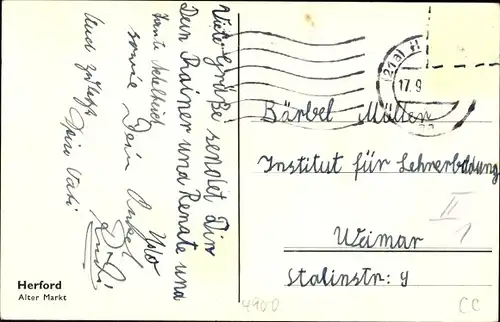 Viele Grüße sendet Dir
Dein Rainer und Renate und
Tante
sowie Dein Onkel
Rudi
Und zuletzt
Deine
Herford
Alter Markt
(21a)
17.9
Bärbel Müller
Institut für Lehrerbildung
II
1
Weimar
Stalinstr: 9
4900
CC